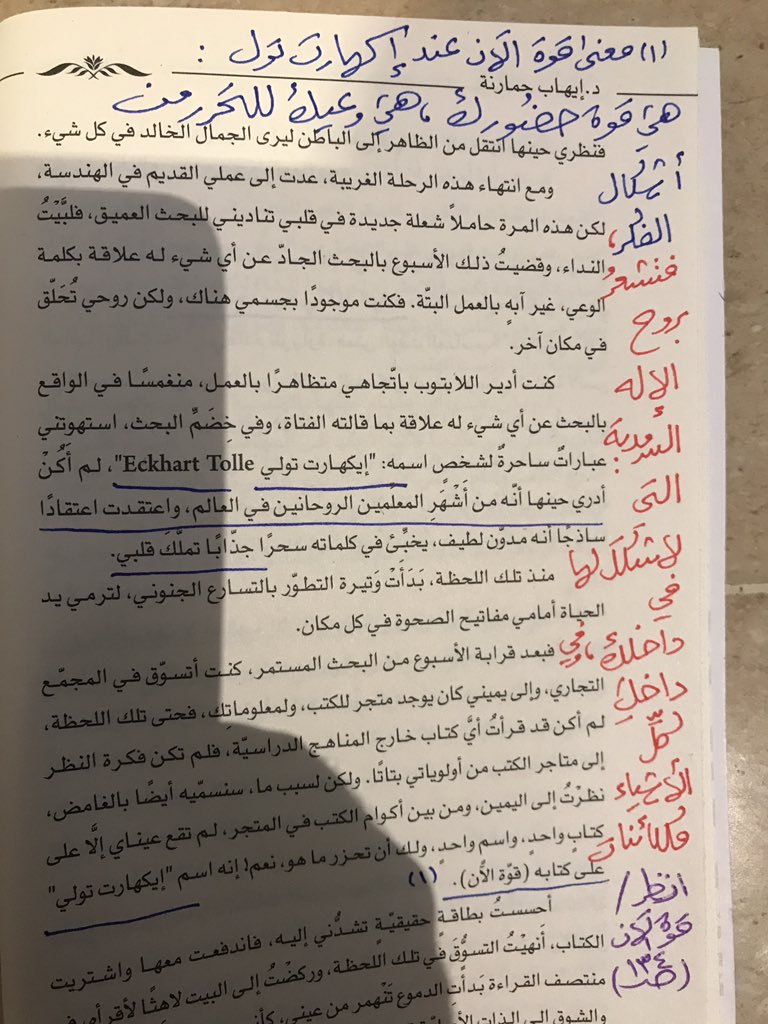 (١) معنى قوة الآن عند إكهارت تول :
د.إيهاب حمارنة
هي قوة حضورك ، هي وعيك للتحرر من
أشكال
الفكر،
فتشعر
بروح
الإله
السرمدية
التي
لا شكل لها
في
داخلك، وفي
داخل
كل
الأشياء
والكائنات
انظر/
قوة الآن
(ص١٣٤)
فنظري حينها انتقل من الظاهر إلى الباطن ليرى الجمال الخالد في كل شيء.
ومع انتهاء هذه الرحلة الغريبة، عدت إلى عملي القديم في الهندسة،
لكن هذه المرة حاملاً شعلة جديدة في قلبي تناديني للبحث العميق، فلبَّيْتُ
النداء، وقضيتُ ذلك الأسبوع بالبحث الجادّ عن أي شيء له علاقة بكلمة
الوعي، غير آبهٍ بالعمل البتّة. فكنت موجودًا بجسمي هناك، ولكن روحي تُحَلّق
في مكان آخر.
كنت أدير اللابتوب باتّجاهي متظاهرًا بالعمل، منغمسًا في الواقع
بالبحث عن أي شيء له علاقة بما قالته الفتاة، وفي خِضَمِّ البحث، استهوتني
عباراتٌ ساحرةٌ لشخصٍ اسمه: "إيكهارت تولي Eckhart Tolle"، لم أكُنْ
أدري حينها أنّه من أَشْهَرِ المعلّمين الروحانيين في العالم، واعتقدت اعتقادًا
ساذجًا أنه مدوّن لطيف، يخبِّئُ في كلماته سحرًا جذّابًا تملّكَ قلبي.
منذ تلك اللحظة، بَدَأَتْ وَتيرة التطوّر بالتسارع الجنوني، لترمي يد
الحياة أمامي مفاتيح الصحوة في كل مكان.
فبعد قرابة الأسبوع من البحث المستمر، كنت أتسوّق في المجمّع
التجاري، وإلى يميني كان يوجد متجر للكتب، ولمعلوماتِك، فحتى تلك اللحظة،
لم أكن قد قرأتُ أيَّ كتاب خارج المناهج الدراسيّة، فلم تكن فكرة النظر
إلى متاجر الكتب من أولوياتي بتاتًا. ولكن لسبب ما، سنسمّيه أيضًا بالغامض،
نظرْتُ إلى اليمين، ومن بين أكوام الكتب في المتجر، لم تقع عيناي إلَّا على
كتابٍ واحدٍ، واسم واحدٍ، ولك أن تحزر ما هو، نعم! إنه اسم "إيكهارت تولي"
على كتابه (قوّة الأن). (١)
أحسستُ بطاقةٍ حقيقيّةٍ تشدُّني إليه، فاندفعت معها واشتريت
الكتاب، أنهيْتُ التسوُّقَ في تلك اللحظة، وركضْتُ إلى البيت لاهثًا لأقرأه، في
منتصف القراءة بَدأتِ الدموع تَنْهمر من عيني،
والشوق إلى الذات